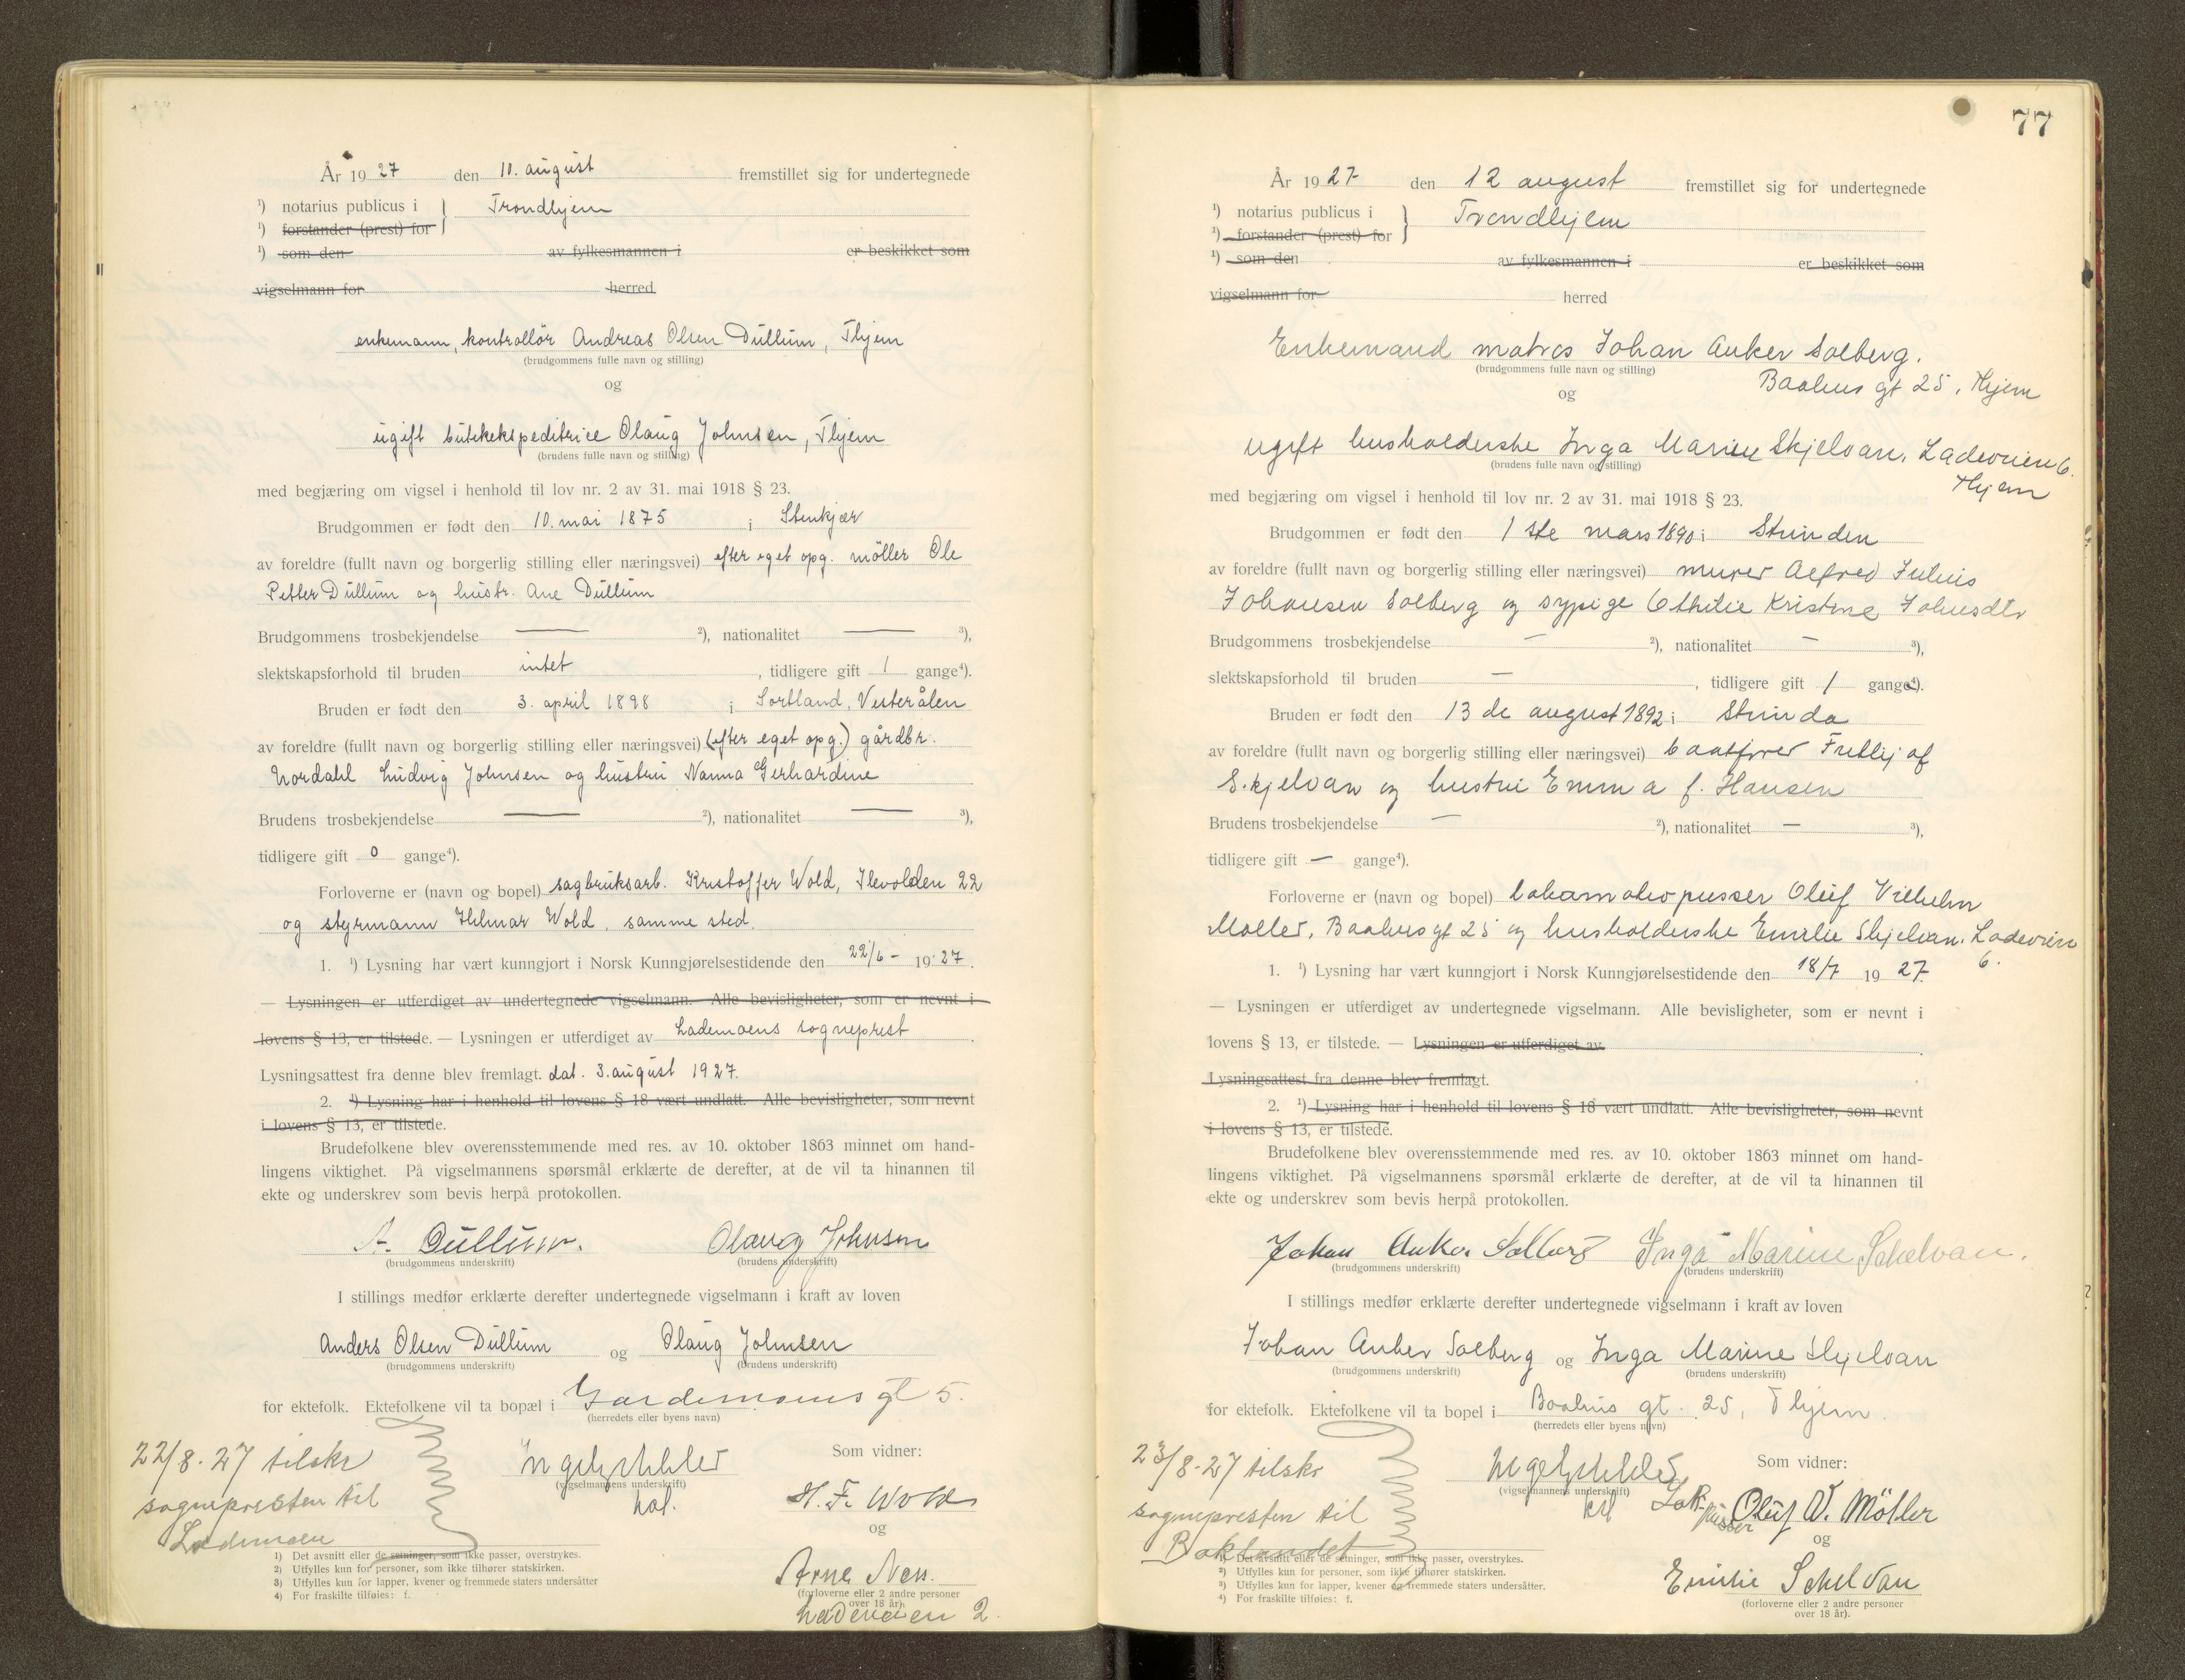 År 19 27 den 10. august fremstillet sig for undertegnede
¹) notarius publicus i } Trondhjem
¹) forstander (prest) for
¹) som den av fylkesmannen i er beskikket som
vigselmann for herred
enkemann, kontrollör Andreas Olsen Dullum, Thjem
(brudgommens fulle navn og stilling)
og
ugift butikekspeditrice Olaug Johnsen, Thjem
(brudens fulle navn og stilling)
med begjæring om vigsel i henhold til lov nr. 2 av 31. mai 1918 § 23.
Brudgommen er født den 10. mai 1875 i Stenkjær
av foreldre (fullt navn og borgerlig stilling eller næringsvei) efter eget opg. möller Ole
Petter Dullum og hustr. Ane Dullum
Brudgommens trosbekjendelse — ²), nationalitet — ³),
slektskapsforhold til bruden intet , tidligere gift 1 gange⁴).
Bruden er født den 3. april 1898 i Sortland, Vesterålen
av foreldre (fullt navn og borgerlig stilling eller næringsvei) (efter eget opg.) gårdbr.
Nordahl Ludvig Johnsen og hustru Nanna Gerhardine
Brudens trosbekjendelse — ²), nationalitet — ³),
tidligere gift 0 gange⁴).
Forloverne er (navn og bopel) sagbruksarb. Kristoffer Wold, Ilevolden 22
og styrmann Hilmar Wold, samme sted.
1. ¹) Lysning har vært kunngjort i Norsk Kunngjørelsestidende den 22/6 - 19 27.
— Lysningen er utferdiget av undertegnede vigselmann. Alle bevisligheter, som er nevnt i
lovens § 13, er tilstede. — Lysningen er utferdiget av Lademoens sogneprest
Lysningsattest fra denne blev fremlagt. dat. 3. august 1927.
2. ¹) Lysning har i henhold til lovens § 18 vært undlatt. Alle bevisligheter, som nevnt
i lovens § 13, er tilstede.
Brudefolkene blev overensstemmende med res. av 10. oktober 1863 minnet om hand-
lingens viktighet. På vigselmannens spørsmål erklærte de derefter, at de vil ta hinannen til
ekte og underskrev som bevis herpå protokollen.
A. Dullum. Olaug Johnsen
(brudgommens underskrift) (brudens underskrift)
I stillings medfør erklærte derefter undertegnede vigselmann i kraft av loven
Anders Olsen Dullum og Olaug Johnsen
(brudgommens underskrift) (brudens underskrift)
for ektefolk. Ektefolkene vil ta bopæl i Gardemoens gt 5.
(herredets eller byens navn)
22/8. 27 tilskr
sognepresten til
Lademoen
(vigselmannens underskrift)
Som vidner:
H. F. Wold
og
Arne Ness.
(forloverne eller 2 andre personer
over 18 år).
Ladeveien 2.
1) Det avsnitt eller de setninger, som ikke passer, overstrykes.
2) Utfylles kun for personer, som ikke tilhører statskirken.
3) Utfylles kun for lapper, kvener og fremmede staters undersåtter
4) For fraskilte tilføies: f.
77
År 19 27 den 12 august fremstillet sig for undertegnede
¹) notarius publicus i } Trondhjem
¹) forstander (prest) for
¹) som den av fylkesmannen i er beskikket som
vigselmann for herred
Enkemand matros Johan Anker Solberg.
(brudgommens fulle navn og stilling)
Baahus gt 25, Thjem
og
ugift husholderske Inga Marie Skjelvan, Ladeveien 6.
(brudens fulle navn og stilling)
Thjem
med begjæring om vigsel i henhold til lov nr. 2 av 31. mai 1918 § 23.
Brudgommen er født den 1ste mars 1890 i Strinden
av foreldre (fullt navn og borgerlig stilling eller næringsvei) murer Alfred Julius
Johansen Solberg og sypige Othilie Kristine Johnsdtr
Brudgommens trosbekjendelse — ²), nationalitet — ³),
slektskapsforhold til bruden — , tidligere gift 1 gange⁴).
Bruden er født den 13de august 1892 i Strinda
av foreldre (fullt navn og borgerlig stilling eller næringsvei) baatfører
Skjelvan og hustru Emma f. Hansen
Brudens trosbekjendelse — ²), nationalitet — ³),
tidligere gift — gange⁴).
Forloverne er (navn og bopel) lokomotivpusser Oluf Vilhelm
Møller, Baahus gt 25 og husholderske Emilie Skjelvan, Ladeveien
6.
1. ¹) Lysning har vært kunngjort i Norsk Kunngjørelsestidende den 18/7 19 27.
— Lysningen er utferdiget av undertegnede vigselmann. Alle bevisligheter, som er nevnt i
lovens § 13, er tilstede. — Lysningen er utferdiget av
Lysningsattest fra denne blev fremlagt.
2. ¹) Lysning har i henhold til lovens § 18 vært undlatt. Alle bevisligheter, som nevnt
i lovens § 13, er tilstede.
Brudefolkene blev overensstemmende med res. av 10. oktober 1863 minnet om hand-
lingens viktighet. På vigselmannens spørsmål erklærte de derefter, at de vil ta hinannen til
ekte og underskrev som bevis herpå protokollen.
Johan Anker Solberg Inga Marine Schelvan.
(brudgommens underskrift) (brudens underskrift)
I stillings medfør erklærte derefter undertegnede vigselmann i kraft av loven
Johan Anker Solberg og Inga Marine Skjelvan
(brudgommens underskrift) (brudens underskrift)
for ektefolk. Ektefolkene vil ta bopel i Baahus gt. 25, Thjem
(herredets eller byens navn)
23/8-27 tilskr
sognepresten til
Baklandet
(vigselmannens underskrift)
Som vidner:
Lok. pusser Oluf V. Möller
og
Emilie Schelvan
(forloverne eller 2 andre personer
over 18 år).
¹) Det avsnitt eller de setninger, som ikke passer, overstrykes.
²) Utfylles kun for personer, som ikke tilhører statskirken.
³) Utfylles kun for lapper, kvener og fremmede staters undersåtter.
⁴) For fraskilte tilføies: f.